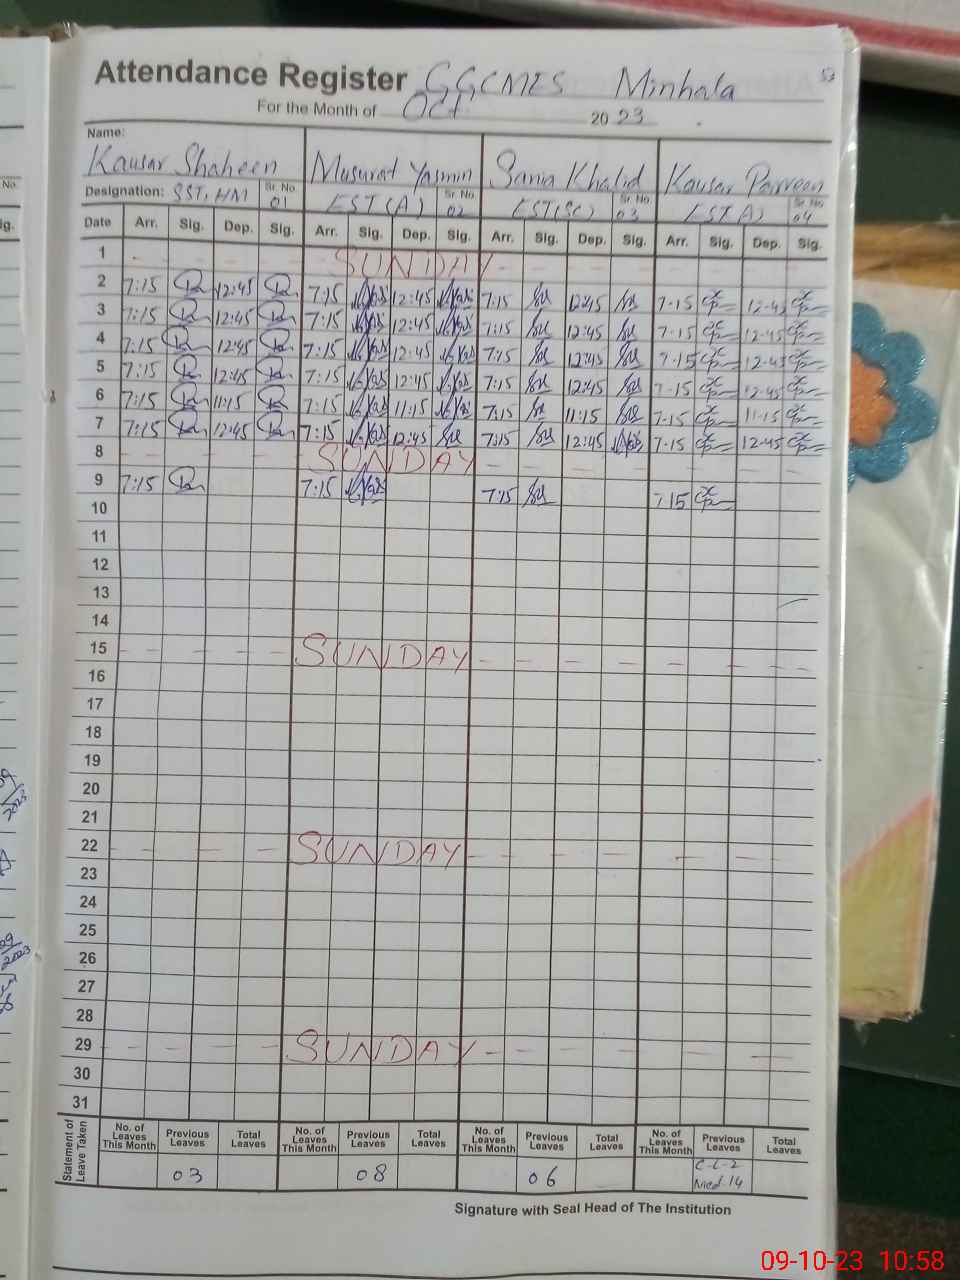 Attendance Register GGCMES Minhala
For the Month of Oct 2023
Name:
Kausar Shaheen Musurat Yasmin Sania Khalid Kausar Parveen
Designation: SST, HM Sr. No. 01 EST (A) Sr. No. 02 EST (SC) Sr. No. 03 EST (A) Sr. No. 04
Date Arr. Sig. Dep. Sig. Arr. Sig. Dep. Sig. Arr. Sig. Dep. Sig. Arr. Sig. Dep. Sig.
1 SUNDAY
2 7:15 12:45 7:15 12:45 7:15 12:45 7-15 12-45
3 7:15 12:45 7:15 12:45 7:15 12:45 7-15 12-45
4 7:15 12:45 7:15 12:45 7:15 12:45 7-15 12-45
5 7:15 12:45 7:15 12:45 7:15 12:45 7-15 12-45
6 7:15 11:15 7:15 11:15 7:15 11:15 7-15 11-15
7 7:15 12:45 7:15 12:45 7:15 12:45 7-15 12-45
8 SUNDAY
9 7:15 7:15 7:15 7-15
10
11
12
13
14
15 SUNDAY
16
17
18
19
20
21
22 SUNDAY
23
24
25
26
27
28
29 SUNDAY
30
31
Statement of Leave Taken
No. of Leaves This Month Previous Leaves Total Leaves No. of Leaves This Month Previous Leaves Total Leaves No. of Leaves This Month Previous Leaves Total Leaves No. of Leaves This Month Previous Leaves Total Leaves
03 08 06 C-L-2
Med-14
Signature with Seal Head of The Institution
09-10-23 10:58